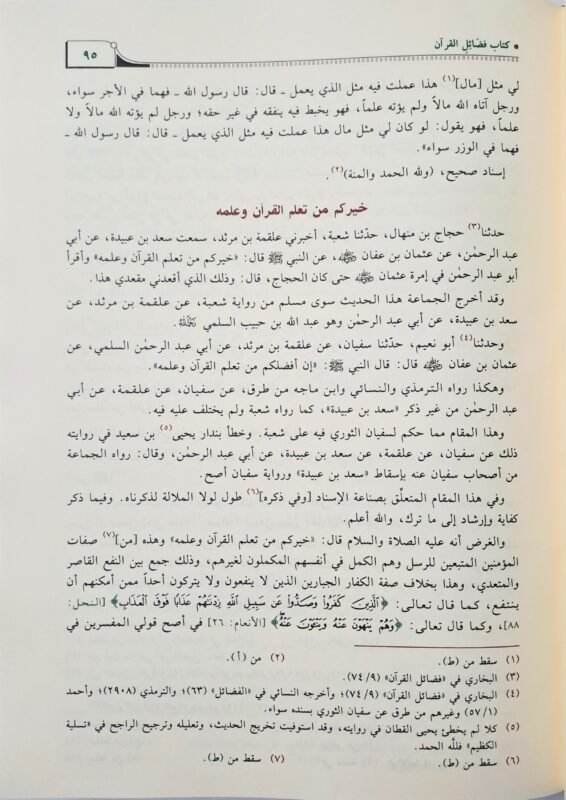 • كتاب فضَائِل القرآن
٩٥
لي مثل [مال](١) هذا عملت فيه مثل الذي يعمل ـ قال: قال رسول الله ـ فهما في الأجر سواء،
ورجل آتاه الله مالاً ولم يؤته علماً، فهو يخبط فيه ينفقه في غير حقه؛ ورجل لم يؤته الله مالاً ولا
علماً، فهو يقول: لو كان لي مثل مال هذا عملت فيه مثل الذي يعمل ـ قال: قال رسول الله ـ
فهما في الوزر سواء».
إسناد صحيح، (ولله الحمد والمنة)(٢).
خيركم من تعلم القرآن وعلمه
حدثنا(٣) حجاج بن منهال، حدّثنا شعبة، أخبرني علقمة بن مرثد، سمعت سعد بن عبيدة، عن أبي
عبد الرحمٰن، عن عثمان بن عفان ﵁، عن النبي ﷺ قال: «خيركم من تعلم القرآن وعلمه» وأقرأ
أبو عبد الرحمٰن في إمرة عثمان ﵁ حتى كان الحجاج، قال: وذلك الذي أقعدني مقعدي هذا.
وقد أخرج الجماعة هذا الحديث سوى مسلم من رواية شعبة، عن علقمة بن مرثد، عن
سعد بن عبيدة، عن أبي عبد الرحمٰن وهو عبد الله بن حبيب السلمي ﵀.
وحدثنا(٤) أبو نعيم، حدّثنا سفيان، عن علقمة بن مرثد، عن أبي عبد الرحمٰن السلمي، عن
عثمان بن عفان ﵁ قال: قال النبي ﷺ: «إن أفضلكم من تعلم القرآن وعلمه».
وهكذا رواه الترمذي والنسائي وابن ماجه من طرق، عن سفيان، عن علقمة، عن أبي
عبد الرحمٰن من غير ذكر «سعد بن عبيدة»، كما رواه شعبة ولم يختلف عليه فيه.
وهذا المقام مما حكم لسفيان الثوري فيه على شعبة. وخطأ بندار يحيى(٥) بن سعيد في روايته
ذلك عن سفيان، عن علقمة، عن سعد بن عبيدة، عن أبي عبد الرحمٰن، وقال: رواه الجماعة
من أصحاب سفيان عنه بإسقاط «سعد بن عبيدة» ورواية سفيان أصح.
وفي هذا المقام المتعلّق بصناعة الإسناد [وفي ذكره](٦) طول لولا الملالة لذكرناه. وفيما ذكر
كفاية وإرشاد إلى ما ترك، والله أعلم.
والغرض أنه عليه الصلاة والسلام قال: «خيركم من تعلم القرآن وعلمه» وهذه [من](٧) صفات
المؤمنين المتبعين للرسل وهم الكمل في أنفسهم المكملون لغيرهم، وذلك جمع بين النفع القاصر
والمتعدي، وهذا بخلاف صفة الكفار الجبارين الذين لا ينفعون ولا يتركون أحداً ممن أمكنهم أن
ينتفع، كما قال تعالى: ﴿ٱلَّذِينَ كَفَرُوا۟ وَصَدُّوا۟ عَن سَبِيلِ ٱللَّهِ زِدْنَٰهُمْ عَذَابًا فَوْقَ ٱلْعَذَابِ﴾ [النحل:
٨٨]، وكما قال تعالى: ﴿وَهُمْ يَنْهَوْنَ عَنْهُ وَيَنْـَٔوْنَ عَنْهُ﴾ [الأنعام: ٢٦] في أصح قولي المفسرين في
(١) سقط من (ط). (٢) من (أ).
(٣) البخاري في «فضائل القرآن» (٧٤/٩).
(٤) البخاري في «فضائل القرآن» (٧٤/٩)؛ وأخرجه النسائي في «الفضائل» (٦٣)؛ والترمذي (٢٩٠٨)؛ وأحمد
(٥٧/١) وغيرهم من طرق عن سفيان الثوري بسنده سواء.
(٥) كلا لم يخطئ يحيى القطان في روايته، وقد استوفيت تخريج الحديث، وتعليله وترجيح الراجح في «تسلية
الكظيم» فللَّه الحمد.
(٦) سقط من (ط). (٧) سقط من (ط).